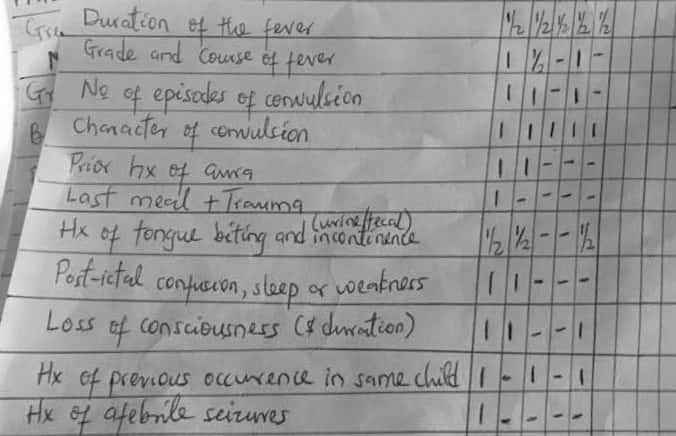 Duration of the fever ½ ½ ½ ½ ½
Grade and Course of fever 1 ½ - 1 -
No of episodes of convulsion 1 1 - 1 -
Character of convulsion 1 1 1 1 1
Prior hx of aura 1 1 - - -
Last meal + Trauma 1 - - - -
Hx of tongue biting and incontinence (urine/fecal) ½ ½ - - ½
Post-ictal confusion, sleep or weakness 1 1 - - -
Loss of consciousness ($ duration) 1 1 - - 1
Hx of previous occurence in same child 1 - 1 - 1
Hx of afebrile seizures 1 - - - -